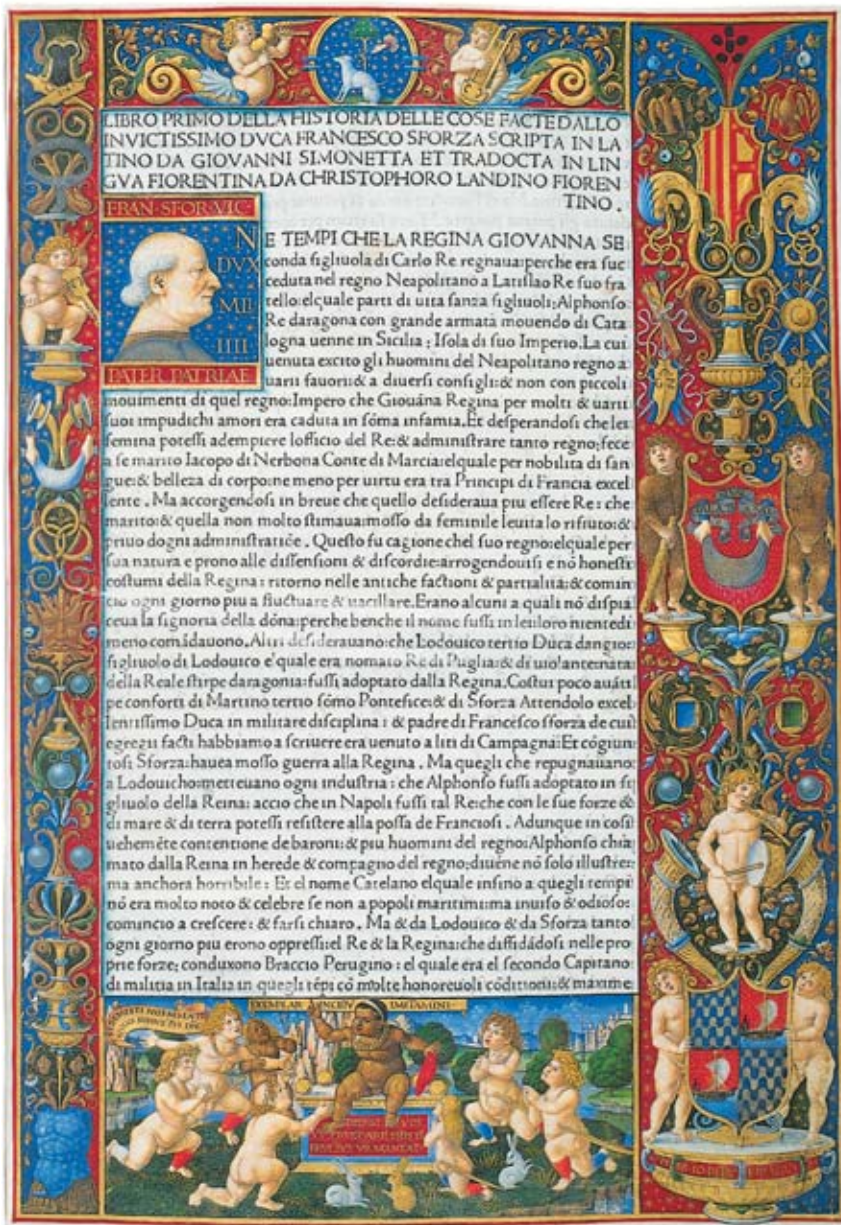 LIBRO PRIMO DELLA HISTORIA DELLE COSE FACTE DALLO
INVICTISSIMO DVCA FRANCESCO SFORZA SCRIPTA IN LA
TINO DA GIOVANNI SIMONETTA ET TRADOCTA IN LIN
GVA FIORENTINA DA CHRISTOPHORO LANDINO FIOREN
TINO.
FRAN·SFOR·VIC
N
DVX
MLI
IIII
PATER PATRIAE
E TEMPI CHE LA REGINA GIOVANNA SE
conda figliuola di Carlo Re regnaua:perche era suc
ceduta nel regno Neapolitano a Latislao Re suo fra
tello:elquale parti di uita sanza figliuoli:Alphonso
Re daragona con grande armata mouendo di Cata
logna uenne in Sicilia: Isola di suo Imperio.La cui
uenuta excito gli huomini del Neapolitano regno a
uarii fauori:& a diuersi consigli:& non con piccoli
mouimenti di quel regno:Impero che Giouāna Regina per molti & uarii
suoi impudichi amori era caduta in sōma infamia.Et desperandosi che lei
femina potessi adempiere lofficio del Re:& administrare tanto regno:fece
a se marito Iacopo di Nerbona Conte di Marcia:elquale per nobilita di san
gue:& belleza di corpo:ne meno per uirtu era tra Principi di Francia excel
lente. Ma accorgendosi in breue che quello desideraua piu essere Re: che
marito:& quella non molto stimaua:mosso da feminile leuita lo rifiuto:&
priuo dogni administratiōe. Questo fu cagione chel suo regno:elquale per
sua natura e prono alle dissensioni & discordie:arrogendouisi e nō honesti
costumi della Regina: ritorno nelle antiche factioni & partialita:& comin
cio ogni giorno piu a fluctuare & uacillare.Erano alcuni a quali nō dispia
ceua la signoria della dōna:perche benche il nome fussi in lei:loro nientedi
meno comādauono.Altri desiderauano:che Lodouico tertio Duca dangio:
figliuolo di Lodouico e'quale era nomato Re di Puglia:& di uiolante:nata
della Reale stirpe daragonia:fussi adoptato dalla Regina.Costui poco auāti
pe conforti di Martino tertio sōmo Pontefice:& di Sforza Attendolo excel
lentissimo Duca in militare disciplina: & padre di Francesco sforza de cui
egregii facti habbiamo a scriuere era uenuto a liti di Campagna:Et cōgiun
tosi Sforza:hauea mosso guerra alla Regina. Ma quegli che repugnauano
a Lodouicho:metteuano ogni industria: che Alphonso fussi adoptato in fi
gliuolo della Reina: accio che in Napoli fussi tal Re:che con le sue forze &
di mare & di terra potessi resistere alla possa de Franciosi. Adunque in cosi
uehemēte contentione de baroni:& piu huomini del regno:Alphonso chia
mato dalla Reina in herede & compagno del regno:diuēne nō solo illustre:
ma anchora horribile: Et el nome Catelano elquale insino a quegli tempi
nō era molto noto & celebre se non a popoli maritimi:ma inuiso & odioso:
comincio a crescere: & farsi chiaro. Ma & da Lodouico & da Sforza tanto
ogni giorno piu erono oppressi:el Re & la Regina:che diffidādosi nelle pro
prie forze: conduxono Braccio Perugino: el quale era el secondo Capitano
di militia in Italia in quegli tēpi cō molte honoreuoli cōditioni:& maxime